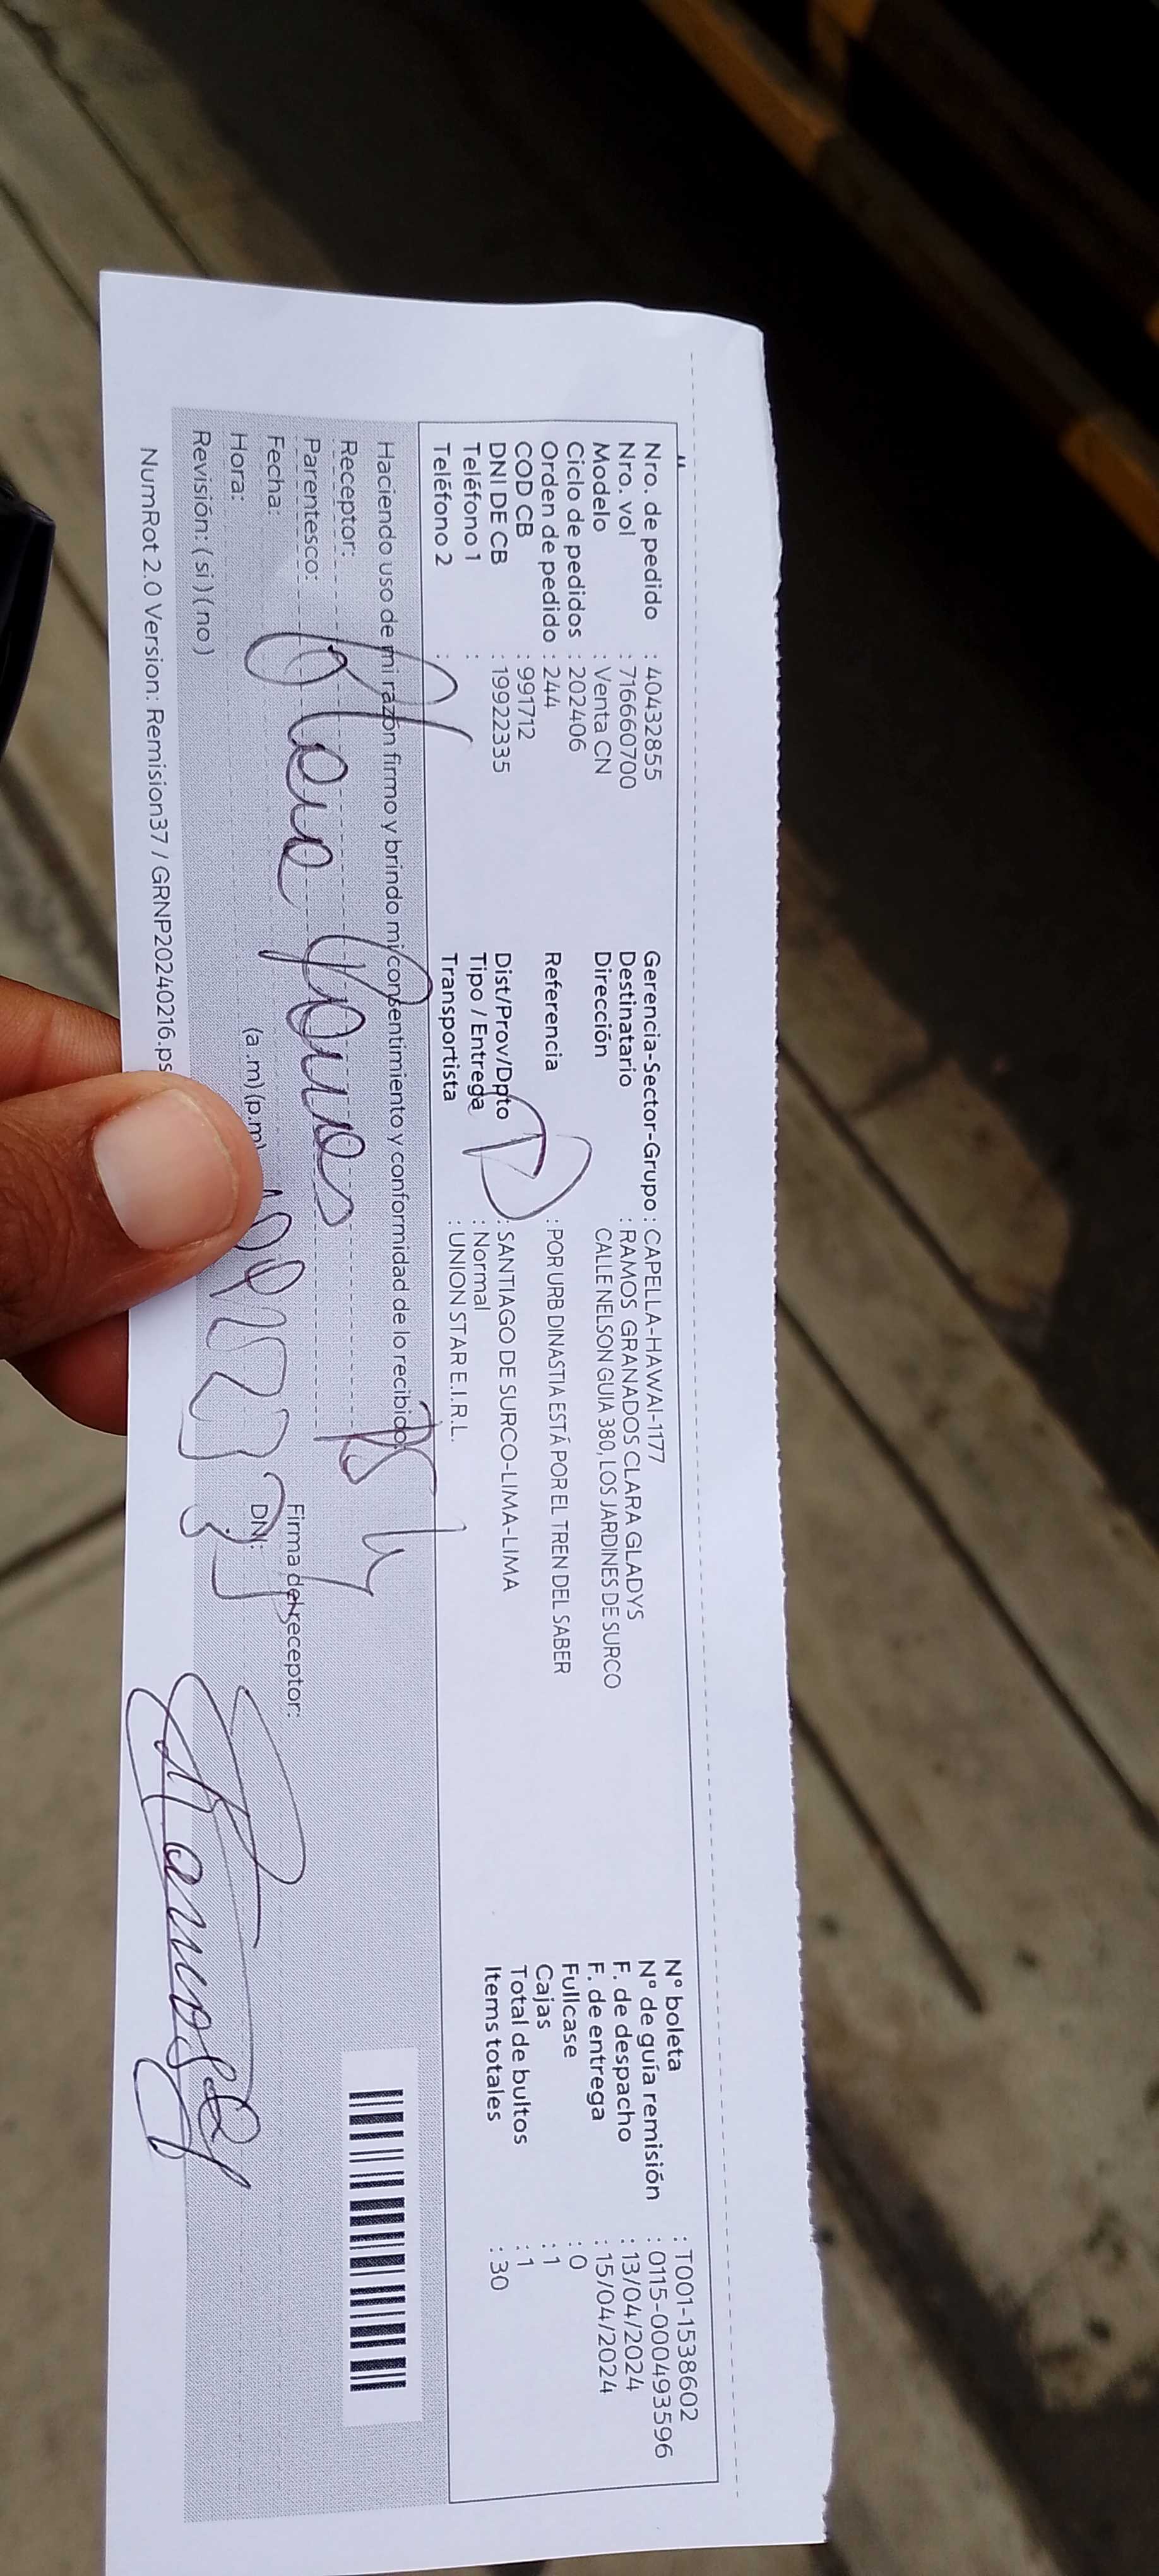 Nro. de pedido : 40432855
Nro. vol : 716660700
Modelo : Venta CN
Ciclo de pedidos : 202406
Orden de pedido : 244
COD CB : 991712
DNI DE CB : 19922335
Teléfono 1 :
Teléfono 2 :
Gerencia-Sector-Grupo : CAPELLA-HAWAI-1177
Destinatario : RAMOS GRANADOS CLARA GLADYS
Dirección CALLE NELSON GUIA 380, LOS JARDINES DE SURCO
Referencia : POR URB DINASTIA ESTÁ POR EL TREN DEL SABER
Dist/Prov/Dpto : SANTIAGO DE SURCO-LIMA-LIMA
Tipo / Entrega : Normal
Transportista : UNION STAR E.I.R.L.
N° boleta : T001-1538602
N° de guía remisión : 0115-000493596
F. de despacho : 13/04/2024
F. de entrega : 15/04/2024
Fullcase : 0
Cajas : 1
Total de bultos : 1
Items totales : 30
Haciendo uso de mi razón firmo y brindo mi consentimiento y conformidad de lo recibido
Receptor:
Parentesco:
Fecha:
Hora: (a.m) (p.m)
Revisión: (si) (no)
Firma del receptor:
DNI:
NumRot 2.0 Version: Remision37 / GRNP20240216.ps